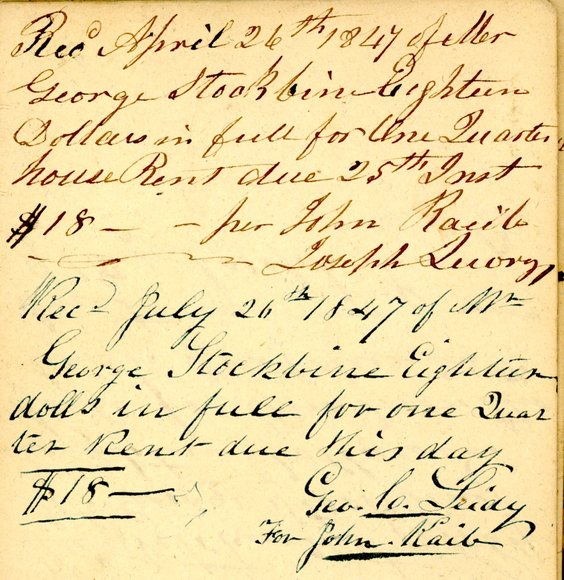 Recd April 26th 1847 of Mr
George Stockbine Eighteen
Dollars in full for One Quarter
house Rent due 25th Inst
$18 — - per John Raib
Joseph
Recd July 26th 1847 of Mr
George Stockbine Eighteen
dolls in full for one Quar
ter Rent due this day
$18 —
Geo. C. Leidy
For John Raib